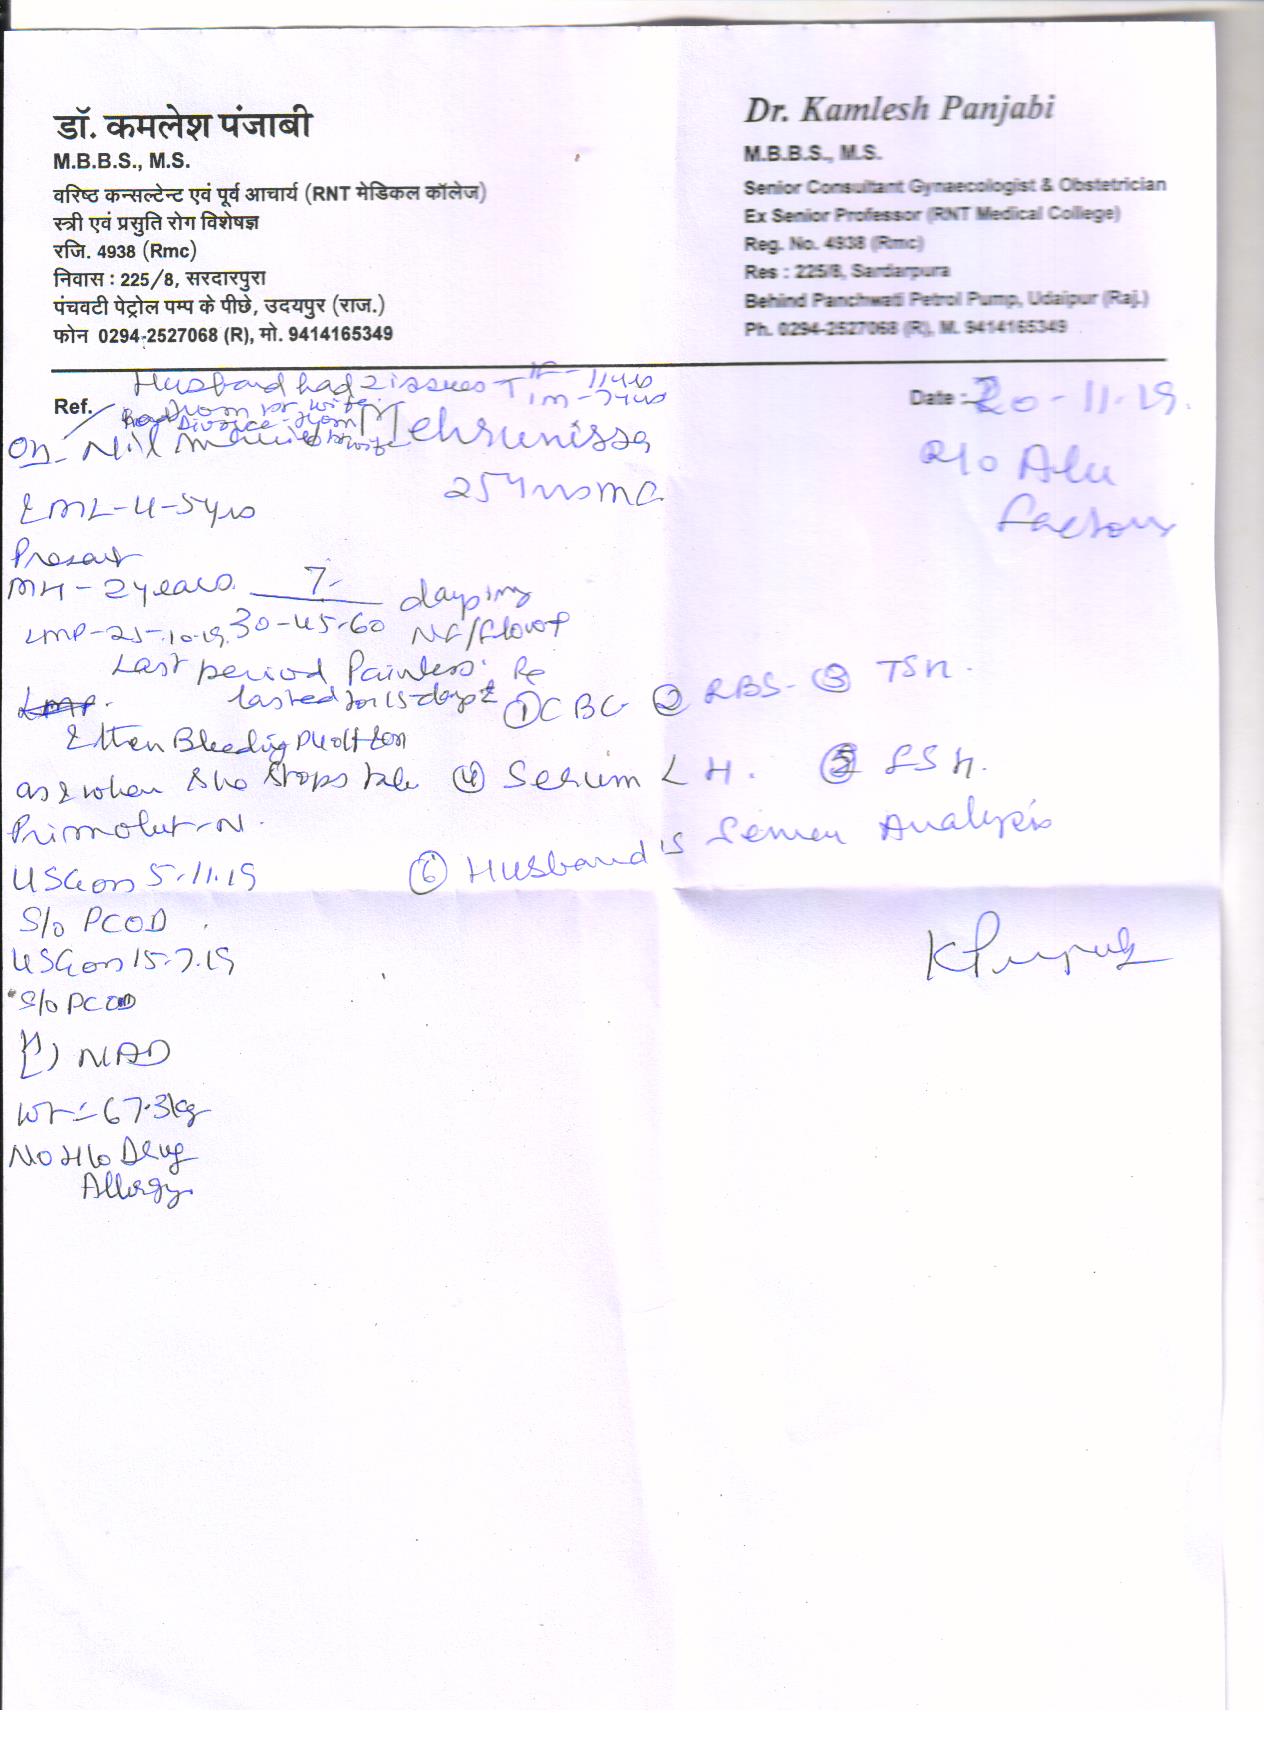 डॉ. कमलेश पंजाबी
M.B.B.S., M.S.
वरिष्ठ कन्सल्टेन्ट एवं पूर्व आचार्य (RNT मेडिकल कॉलेज)
स्त्री एवं प्रसुति रोग विशेषज्ञ
रजि. 4938 (Rmc)
निवास : 225/8, सरदारपुरा
पंचवटी पेट्रोल पम्प के पीछे, उदयपुर (राज.)
फोन 0294-2527068 (R), मो. 9414165349
Dr. Kamlesh Panjabi
M.B.B.S., M.S.
Senior Consultant Gynaecologist & Obstetrician
Ex Senior Professor (RNT Medical College)
Reg. No. 4938 (Rmc)
Res : 225/8, Sardarpura
Behind Panchwati Petrol Pump, Udaipur (Raj.)
Ph. 0294-2527068 (R), M. 9414165349
Husband had 2 issues 1F - 11yrs
1m - 7yrs
Ref.
from 1st wife
Divorce from
Date : 20-11-19.
Nil Mehrunissa
25yrs
R/o Alu
Factory
ML-4-5yrs
Present
MH - 2 years. 7 days
LMP-25-10-19. 30-45-60
Last period Painless.
lasted for 15 days
① CBC ② RBS - ③ TSH.
Bleeding
as & when she stops
④ Serum LH. ⑤ FSH.
Primolut-N.
⑥ Husband's Semen Analysis
USG on 5.11.19
S/o PCOD
USG on 15.7.19
S/o PCOD
NAD
Wt = 67.3kg
No H/o Drug
Allergy.